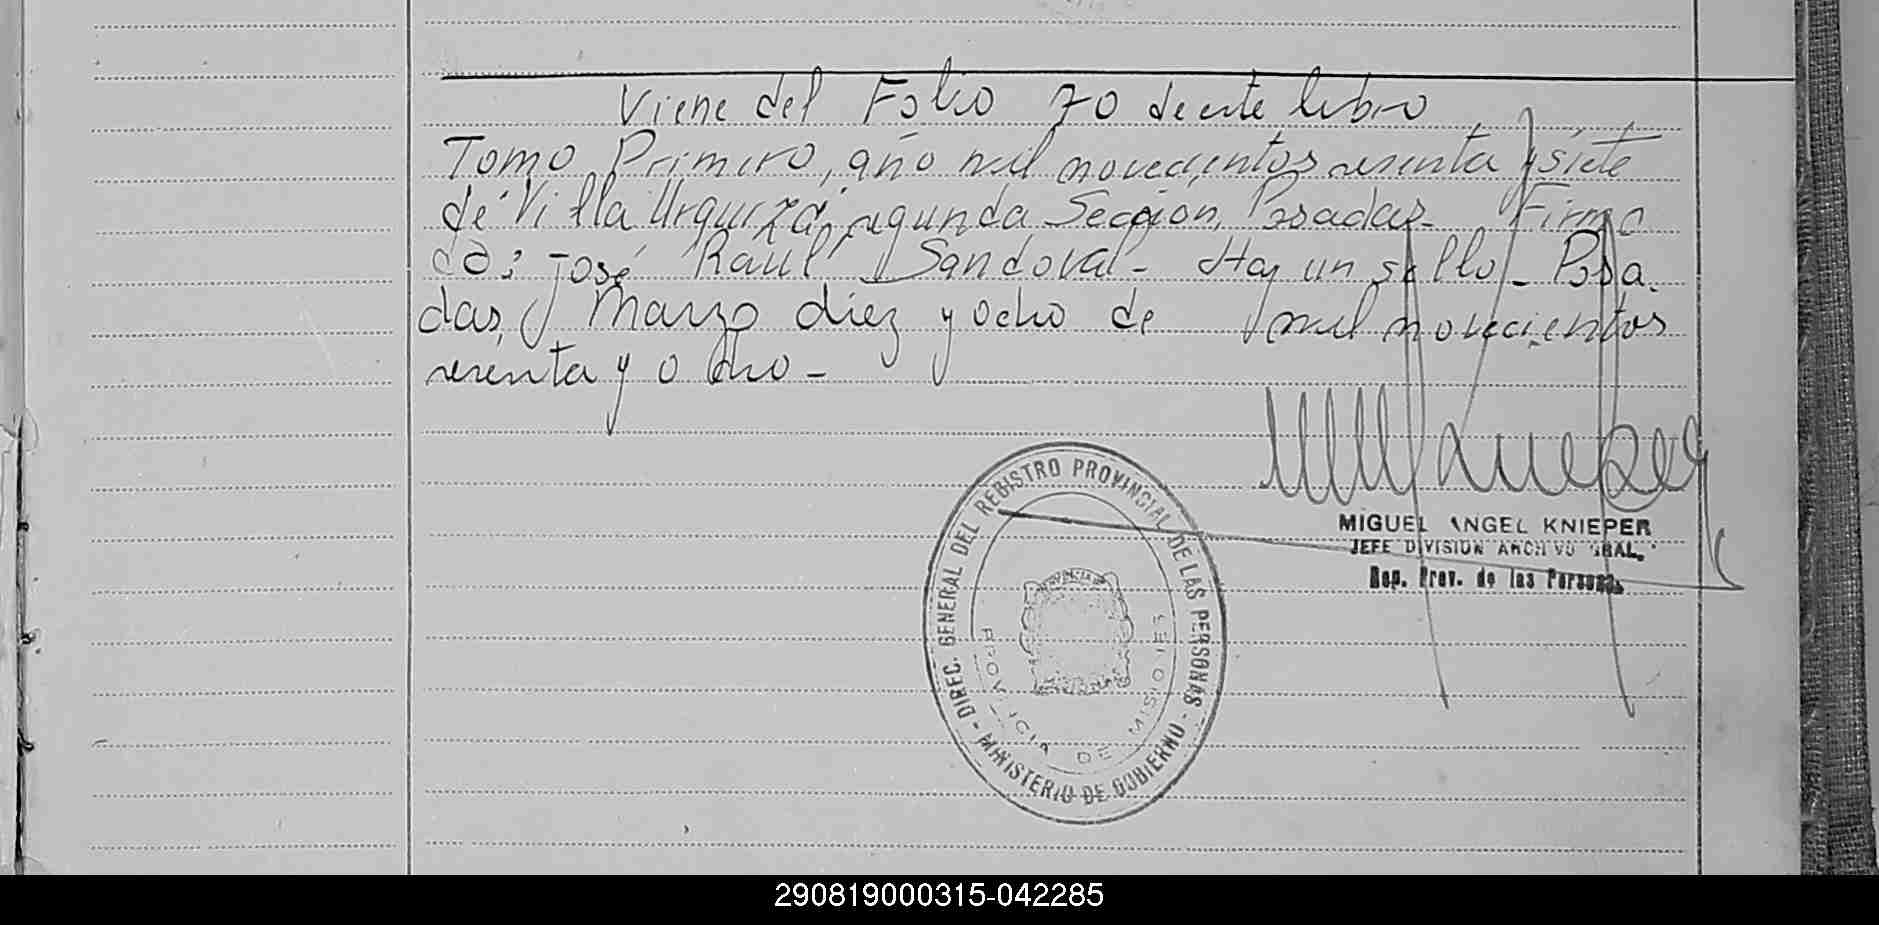 Viene del Folio 70 de este libro
Tomo Primero, año mil novecientos sesenta y siete
de Villa Urquiza, segunda Sección, Posadas- Firma
do: José Raúl Sandoval- Hay un sello- Posa-
das, Marzo diez y ocho de mil novecientos
sesenta y ocho-
MIGUEL ANGEL KNIEPER
JEFE DIVISION ARCHIVO GRAL.
Rep. Prov. de las Personas
DIREC. GENERAL DEL REGISTRO PROVINCIAL DE LAS PERSONAS
- MINISTERIO DE GOBIERNO -
PROVINCIA DE MISIONES
290819000315-042285